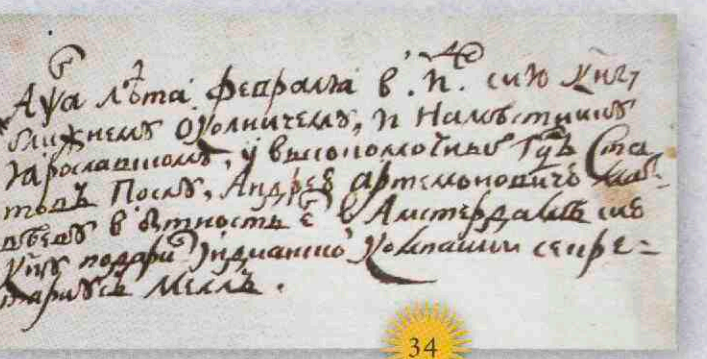 АѰа лѣта февралѧ в .И. сию книгу
ближнему околничему, и Намѣстнику
Ярославскому, у высокомочныхъ Гдъ Ста
товъ Послу, Андрею Артемоновичю Мат-
вѣеву в бытность ево в Амстердамѣ сию
книгу подари Індианской компании секре=
тариусъ Меллъ.
34